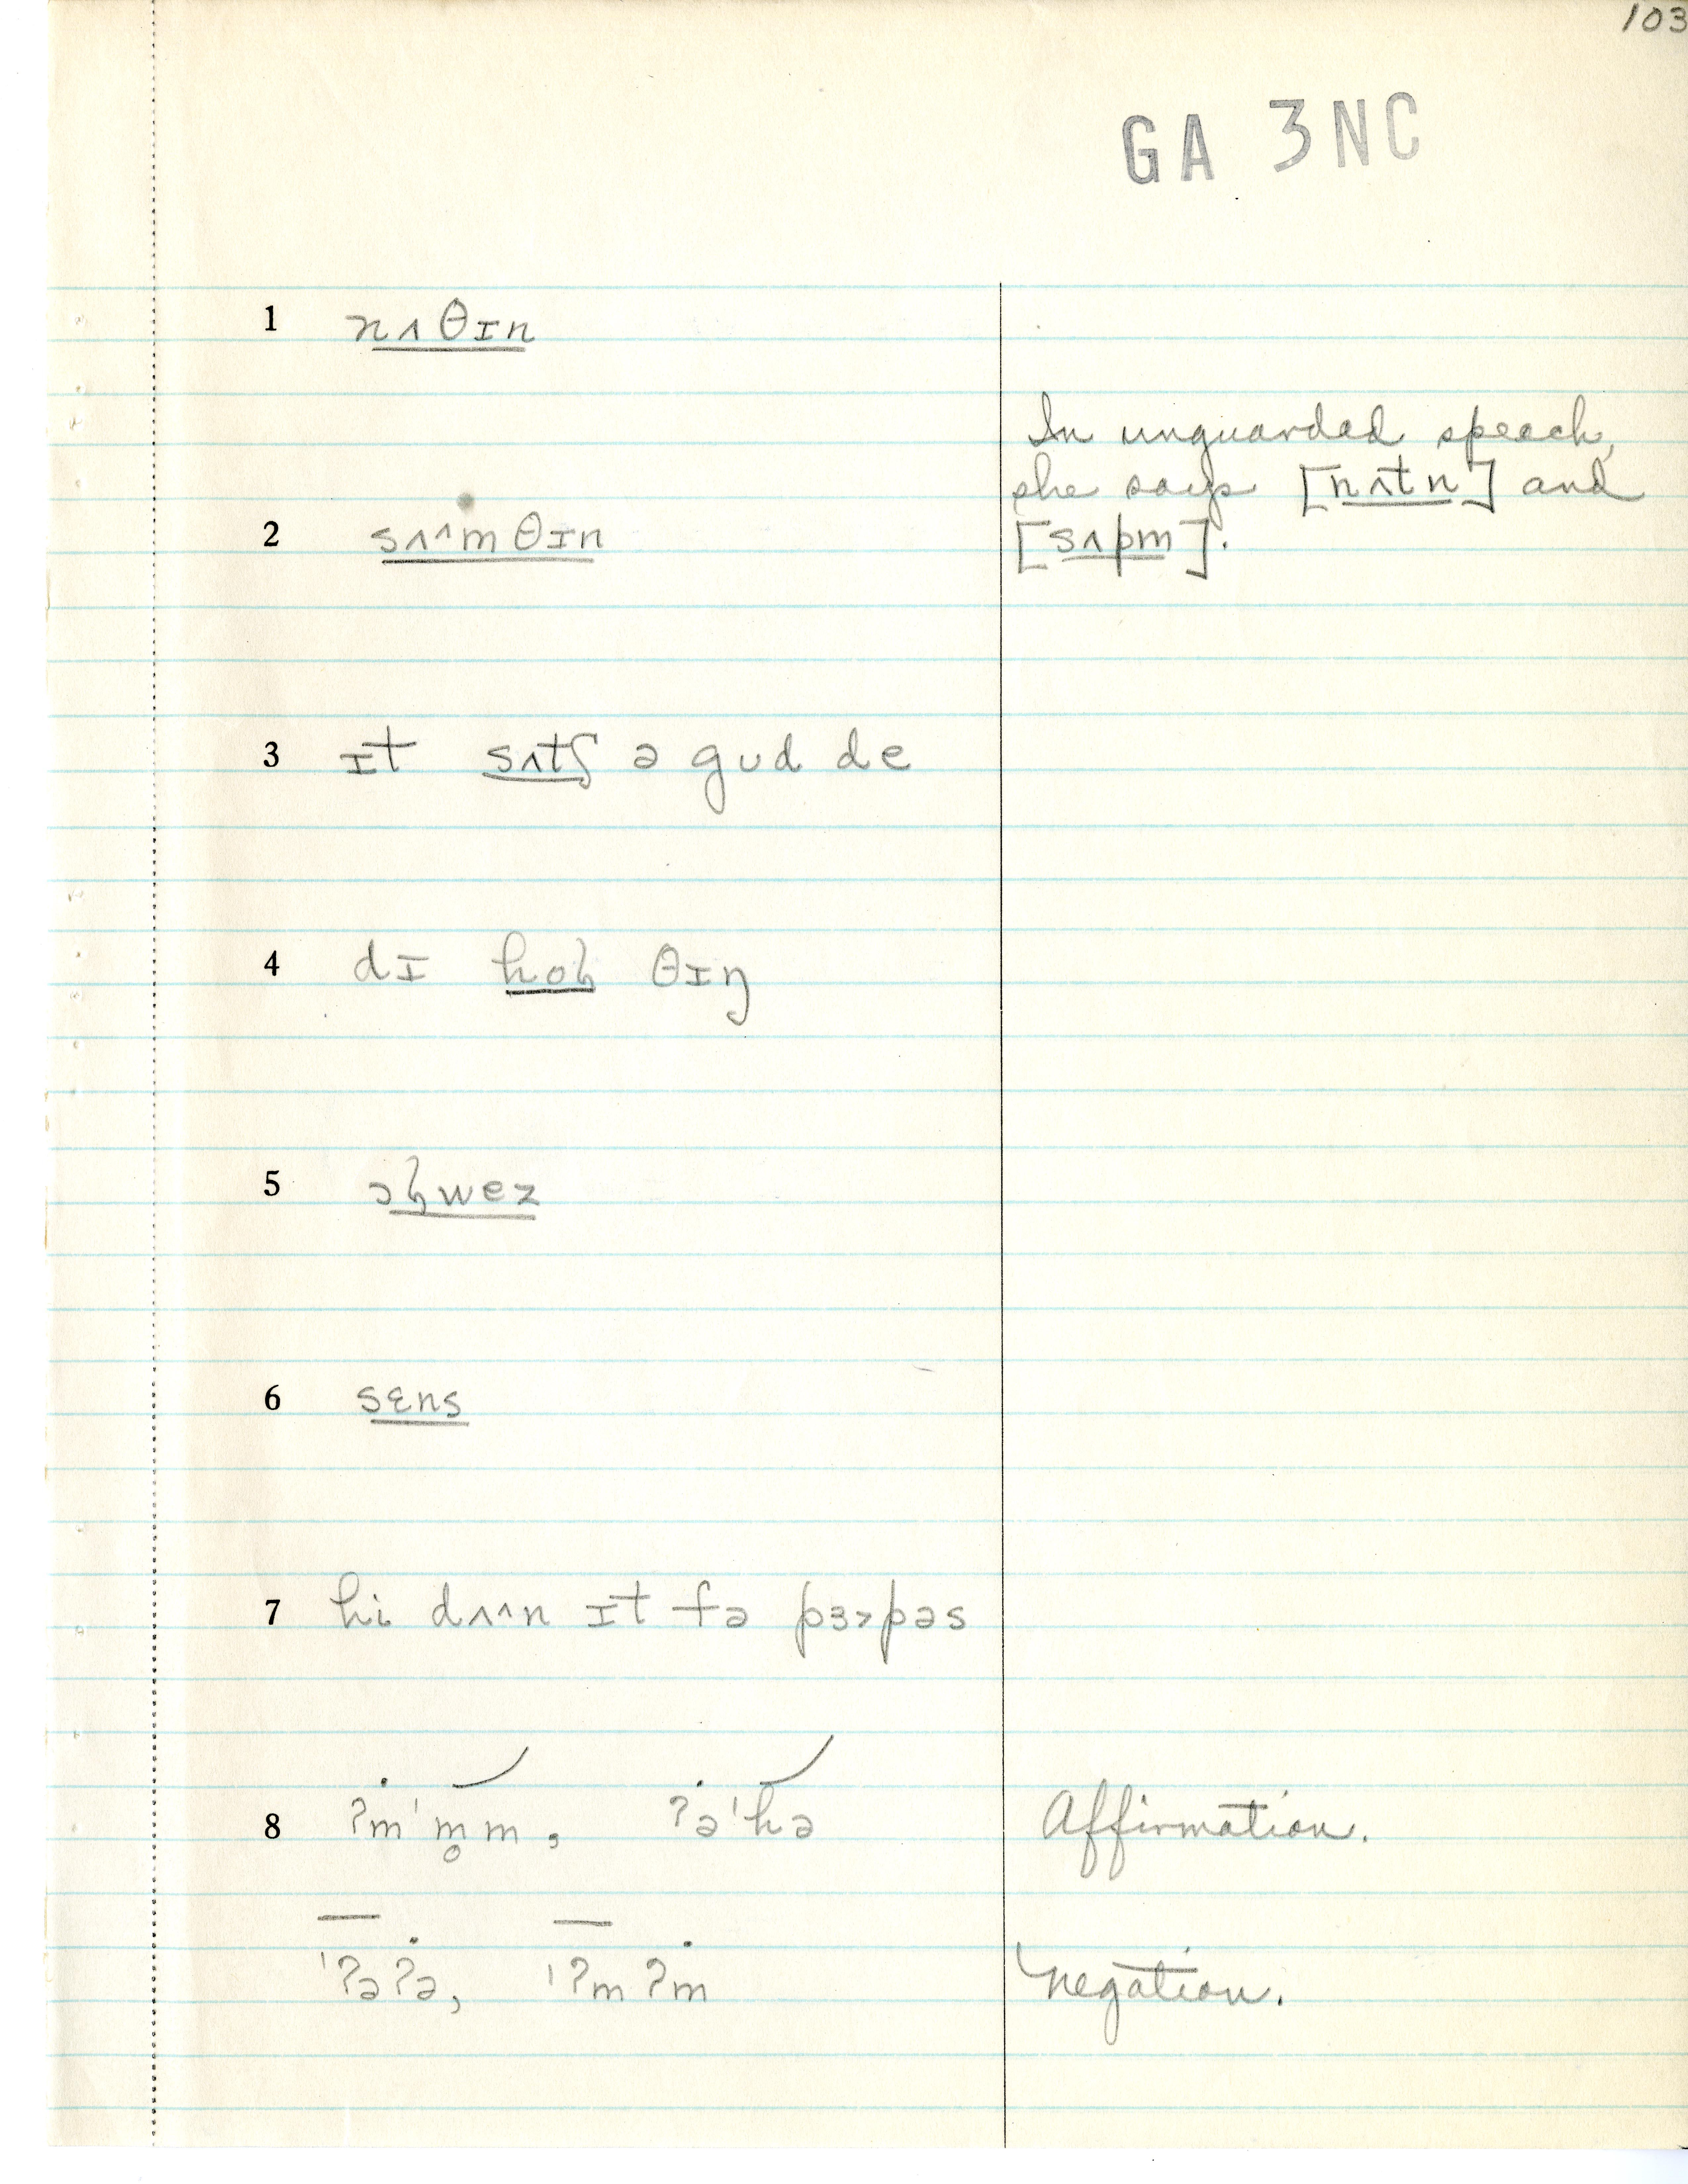 103
GA 3NC
1 nʌθɪn
In unguarded speech,
she says [nʌtn] and
2 sʌ^mθɪn [sʌpm].
3 ɪt sʌtʃ ə gud de
4 dɪ hoɫ θɪŋ
5 ɔɫwez
6 sɛns
7 hi dʌ^n ɪt fə pɜ>pəs
8 ʔm'm̥m, ʔə'hə Affirmation.
'ʔəʔə, 'ʔmʔm Negation.